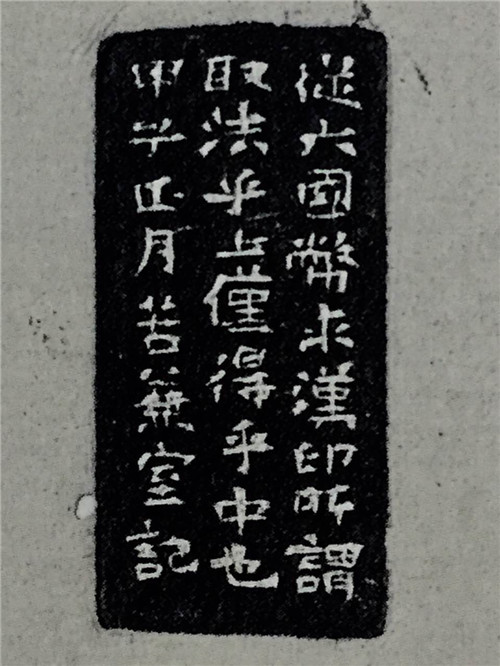 從六國幣求漢印所謂
取法乎上僅得乎中也
甲子正月苦兼室記